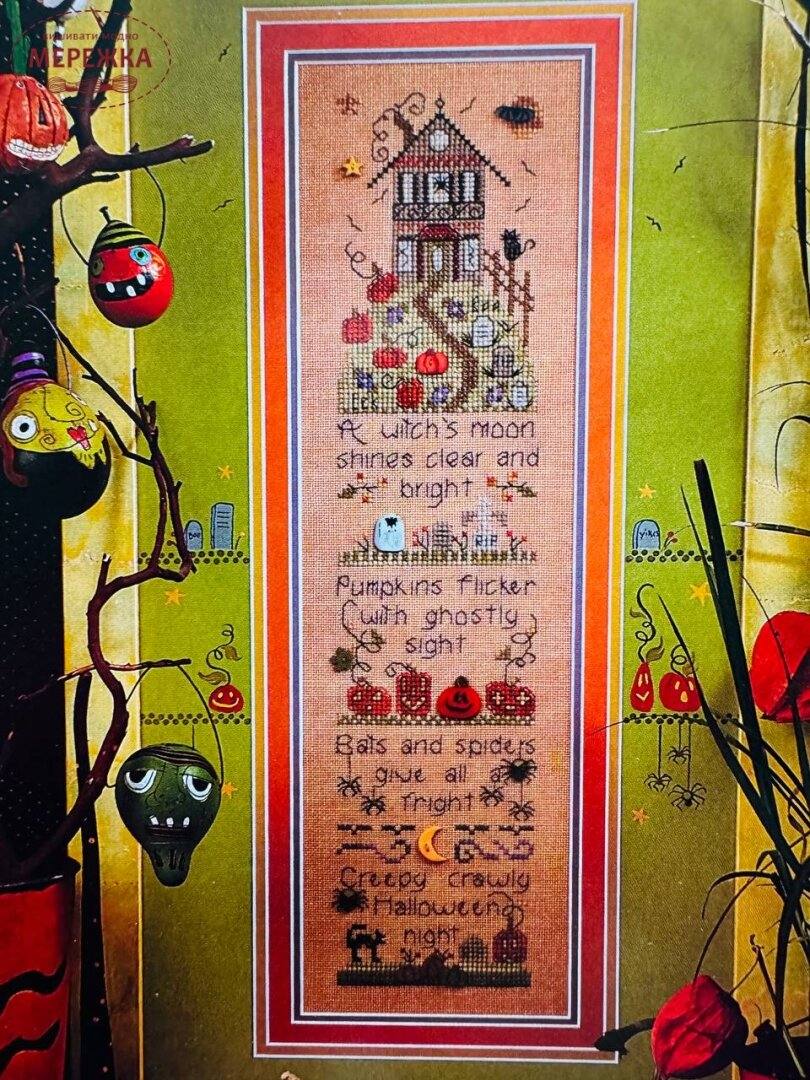 вишивати модно
МЕРЕЖКА
EEK
A witch's moon
shines clear and
bright
BOO
RIP
YIKES
Pumpkins flicker
with ghostly
sight
Bats and spiders
give all a
fright
Creepy crawly
Halloween
night